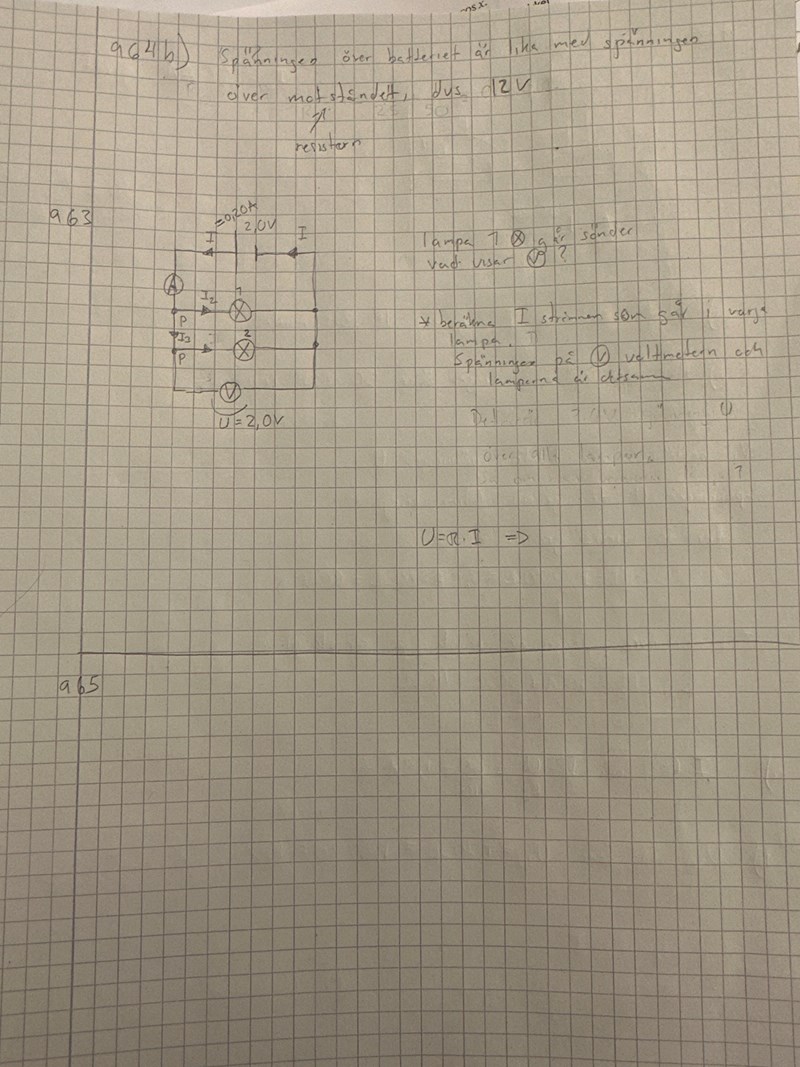 964b) Spänningen över batteriet är lika med spänningen
över motståndet, dvs 12V
resistorn
963
=0,20A
2,0V
I
I
lampa 1 ⊗ går sönder
vad visar Ⓥ?
A
I₂
1
P
I₃
2
P
V
U=2,0V
* beräkna I strömmen som går i varje
lampa.
Spänningen på Ⓥ voltmetern och
lamporna är
över alla
?
U=R·I =>
965